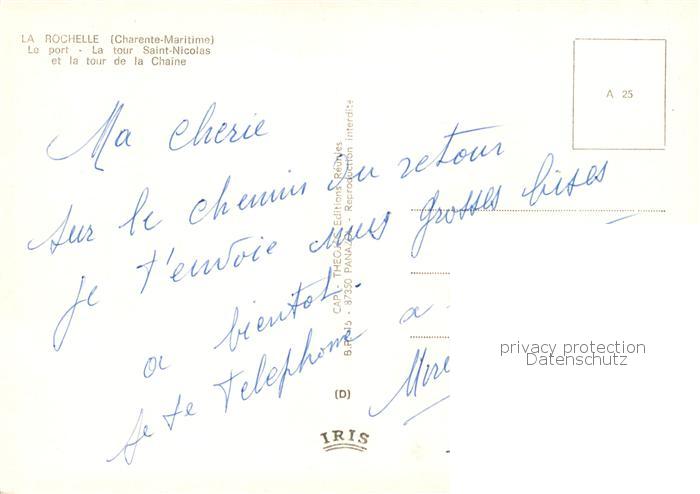 LA ROCHELLE (Charente-Maritime)
Le port - La tour Saint-Nicolas
et la tour de la Chaîne
A 25
Ma cherie
sur le chemin du retour
je t'envoie mes grosses bises
a bientot.
je te telephone a
CAP - THEOJAC Editions Réunies
B.P. 15 - 87350 PANAZOL Reproduction interdite
(D)
IRIS
privacy protection
Datenschutz